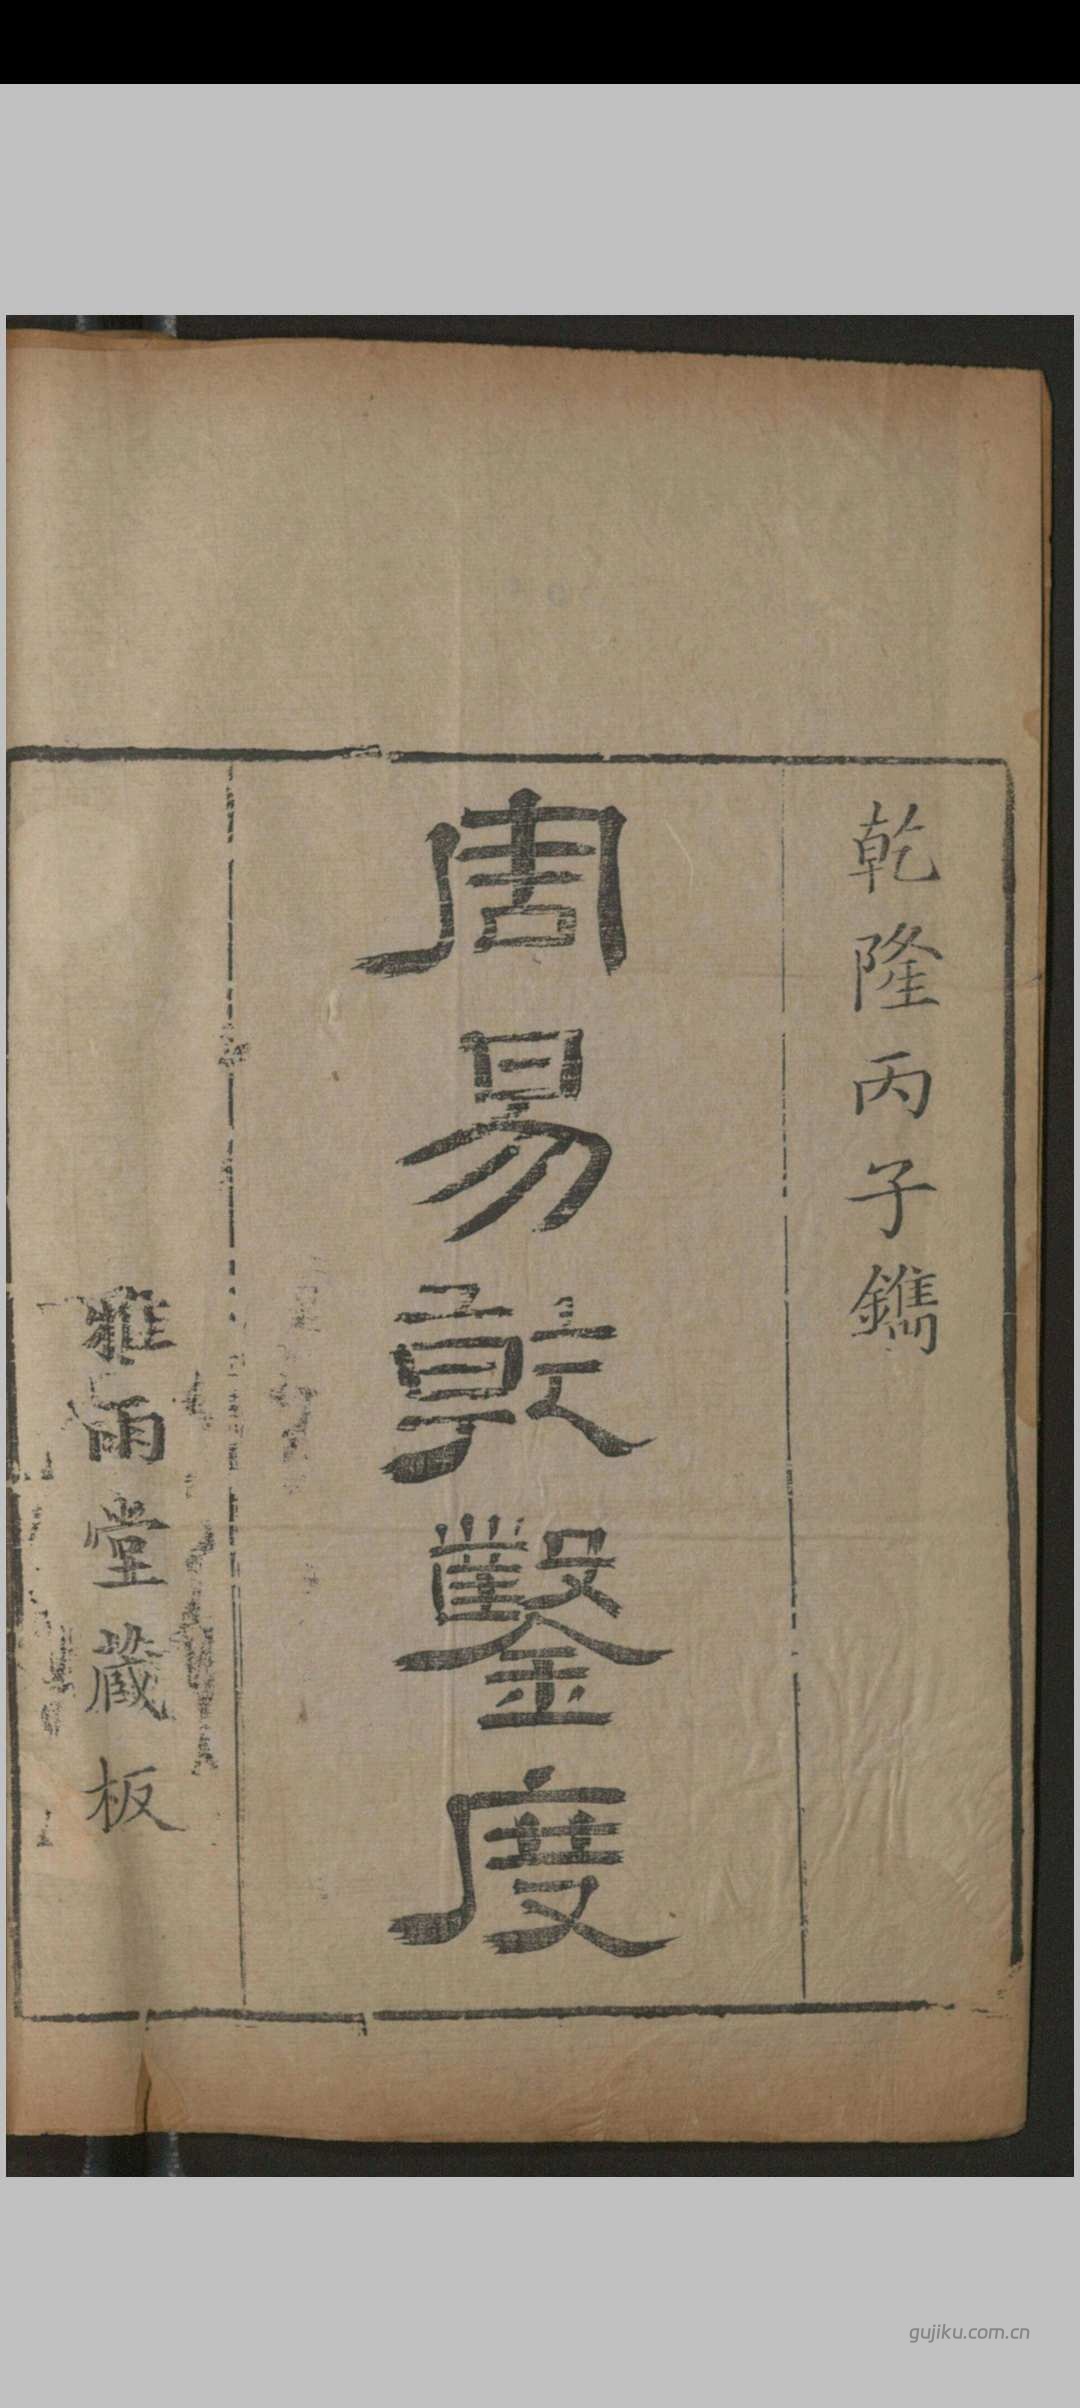 乾隆丙子鐫
周易乾鑿度
雅雨堂蔵板
gujiku.com.cn